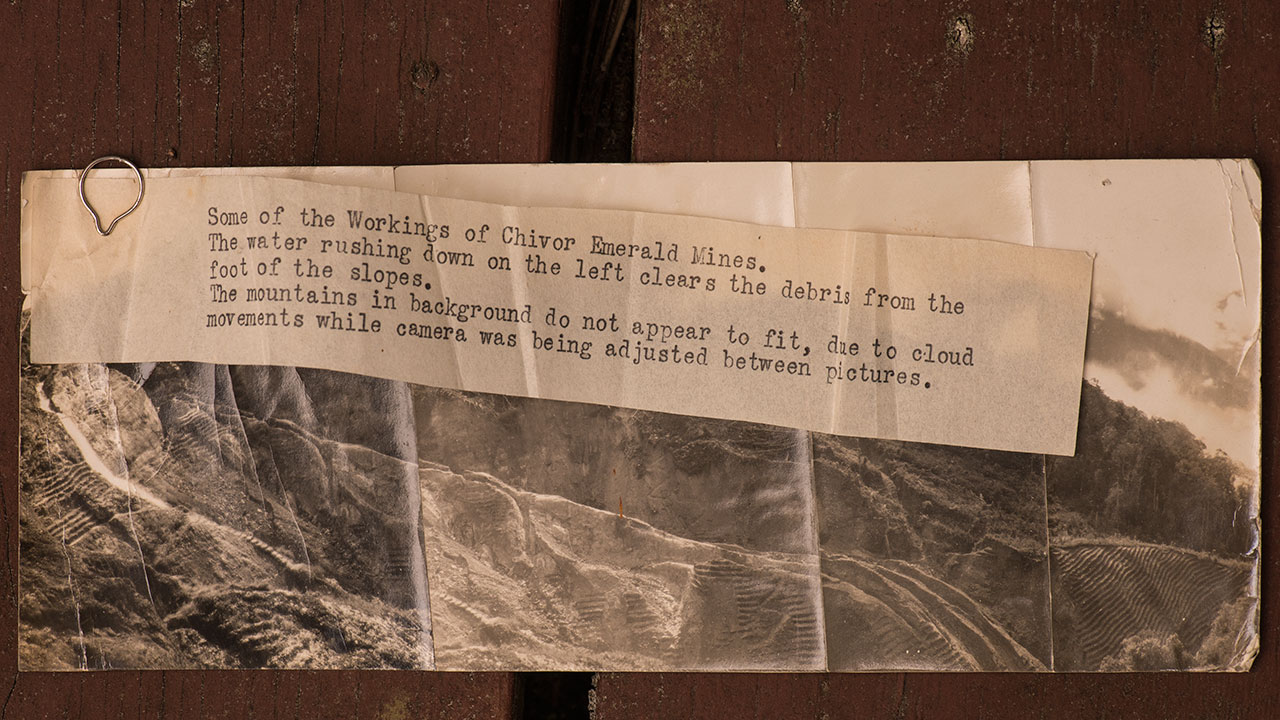 Some of the Workings of Chivor Emerald Mines.
The water rushing down on the left clears the debris from the
foot of the slopes.
The mountains in background do not appear to fit, due to cloud
movements while camera was being adjusted between pictures.